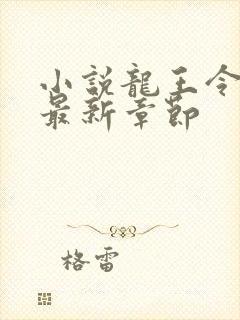 小説龍王令
最新章節
格雷